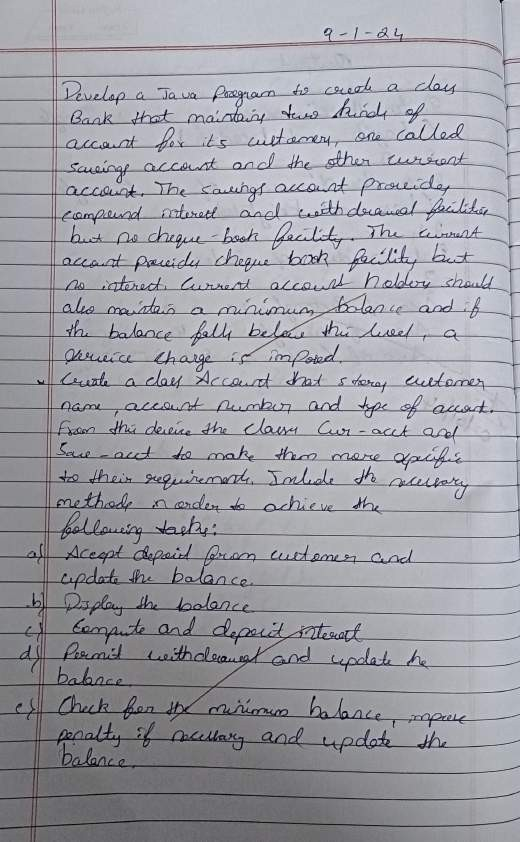 9-1-24
Develop a Java Program to create a class
Bank that maintains two kinds of
account for its customers, one called
savings account and the other current
account. The savings account provides
compound interest and withdrawal facilities
but no cheque-book facility. The current
account provides cheque book facility but
no interest. Current account holders should
also maintain a minimum balance and if
the balance falls below this level, a
service charge is imposed.
Create a class Account that stores customer
name, account number and type of account.
From this derive the classes Cur-acct and
Sav-acct to make them more specific
to their requirements. Include the necessary
methods in order to achieve the
following tasks:
a) Accept deposit from customer and
update the balance.
b) Display the balance
c) Compute and deposit interest
d) Permit withdrawal and update the
balance
e) Check for the minimum balance, impose
penalty if necessary and update the
balance.